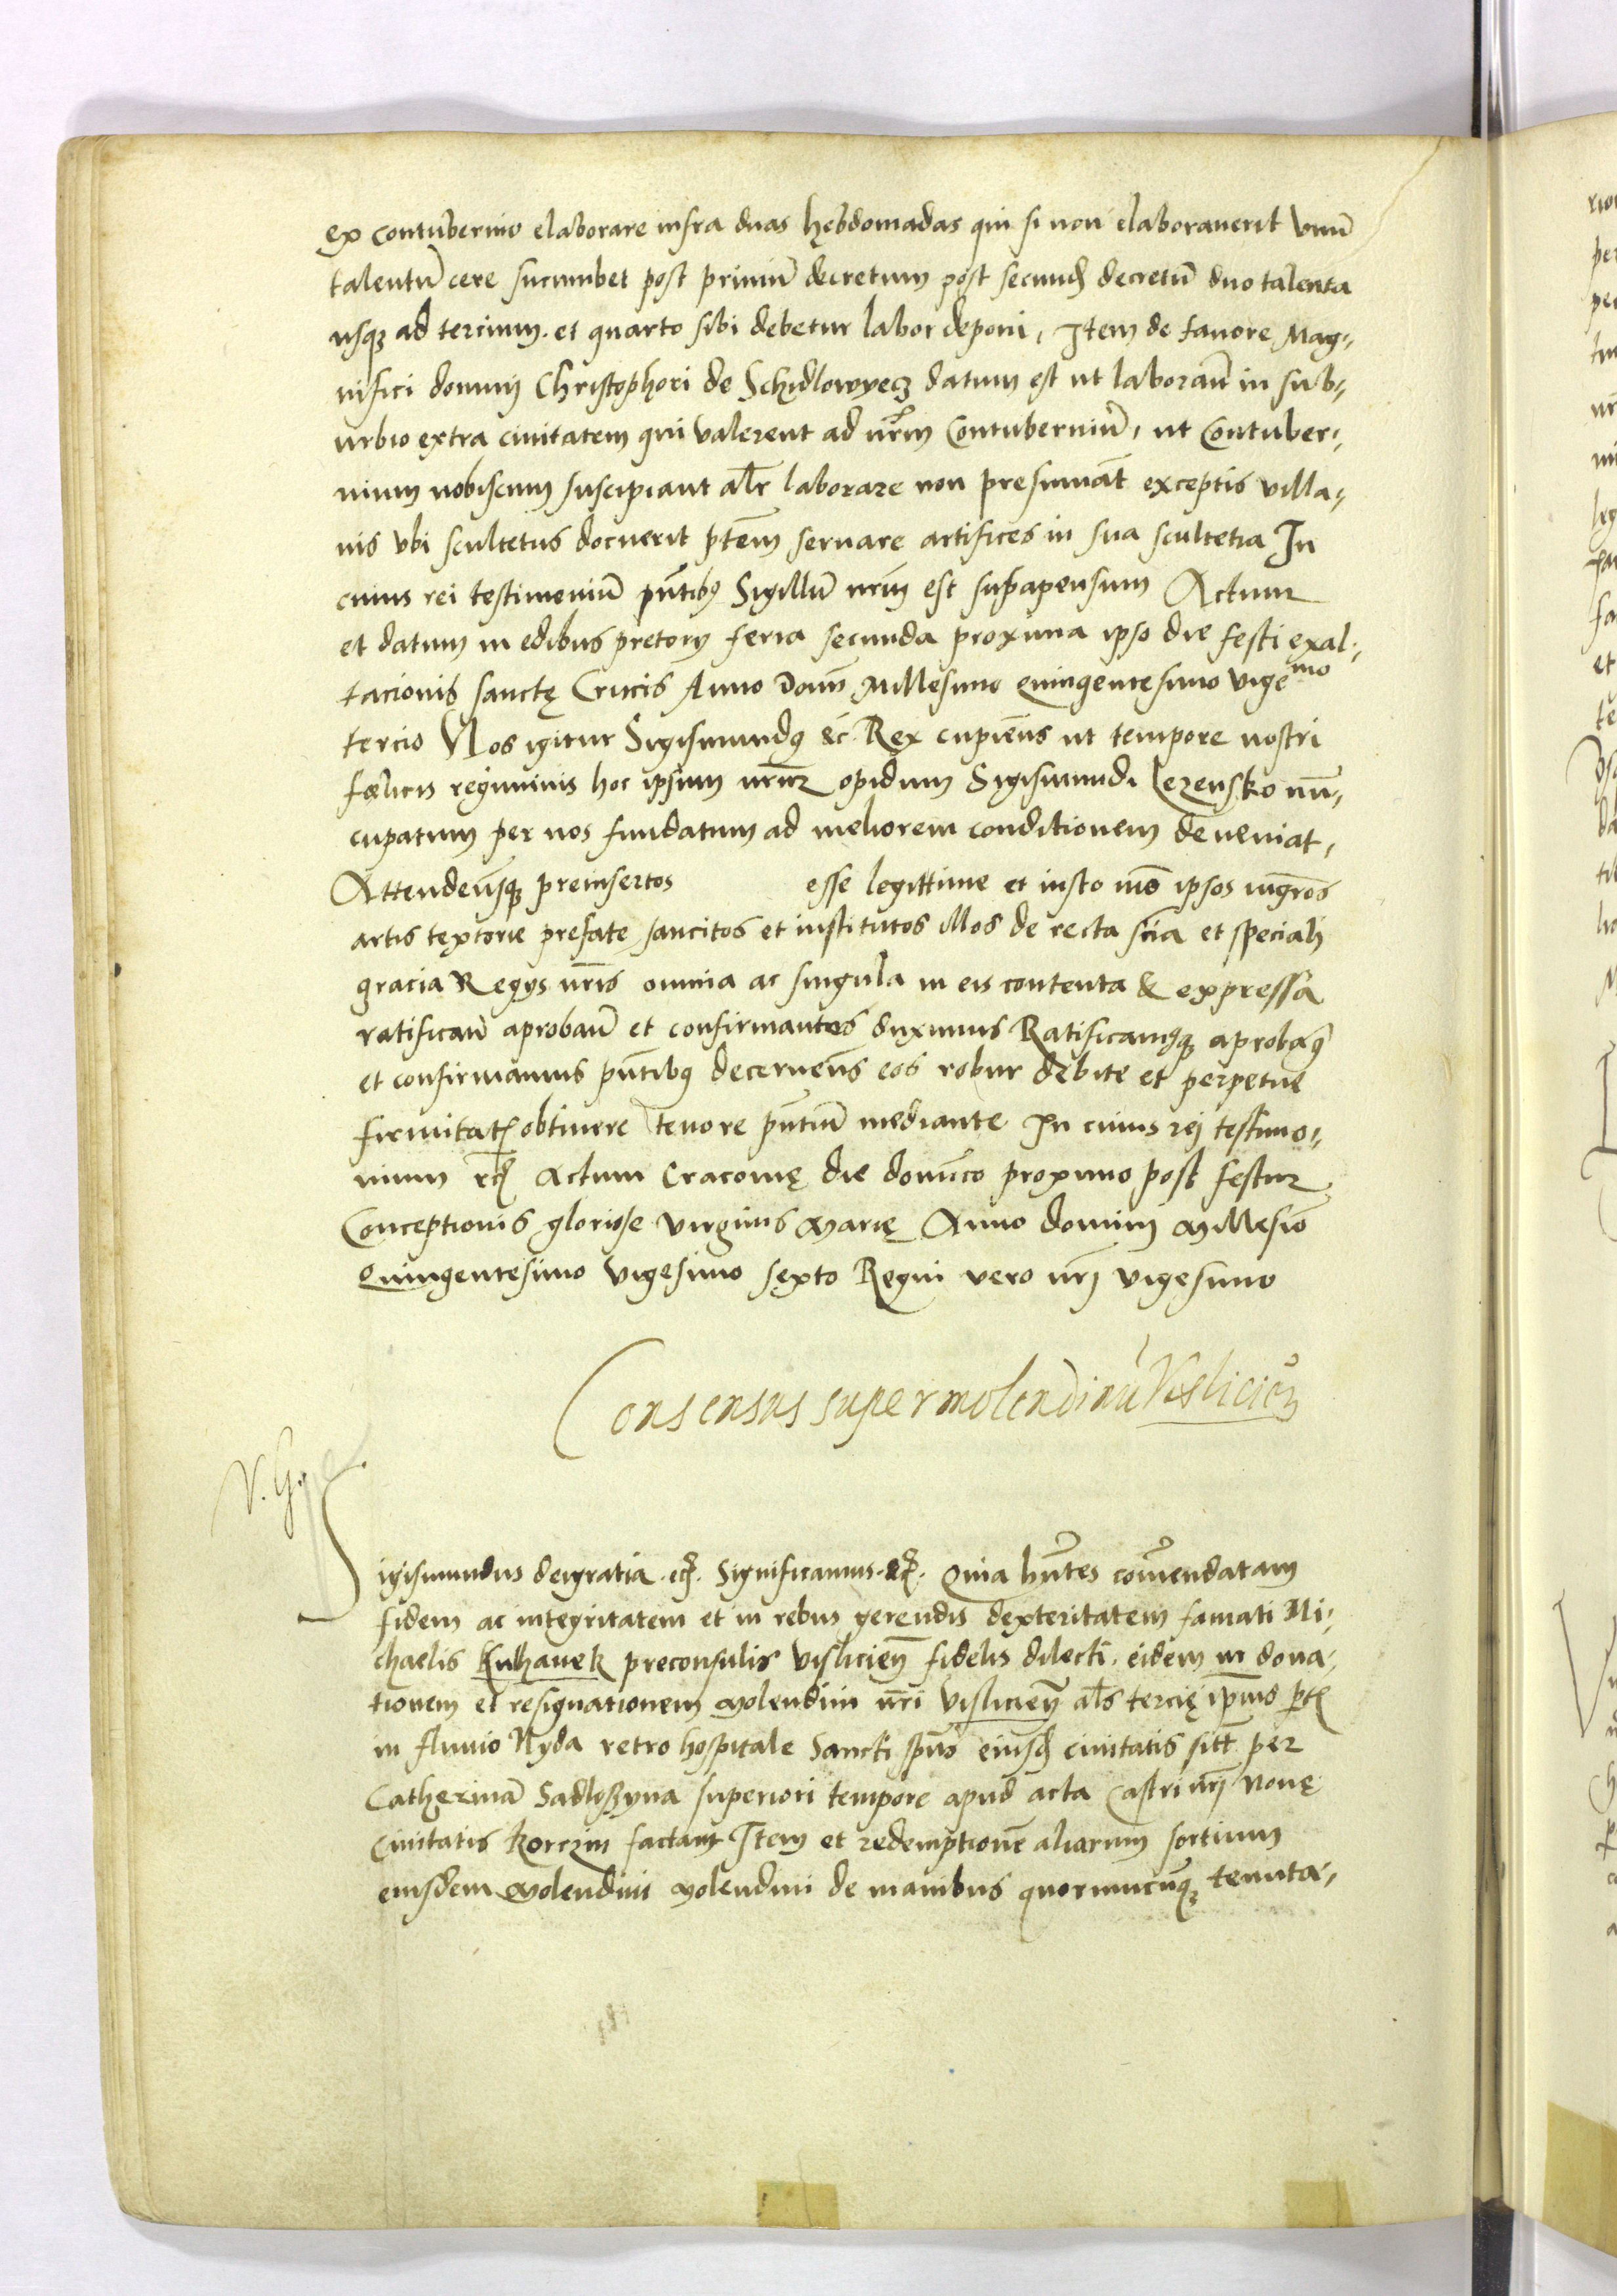 ex contubernio elaborare infra duas hebdomadas qui si non elaboraverit unũ
talentũ cere sucumbet post primũ decretum post secund decretũ duo talenta
usq̃ ad tercium. et quarto sibi debetur labor deponi, Item de favore Mag,
nifici domini Christophori de Schidlowyecz datum est ut laborañ in sub,
urbio extra civitatem qui valerent ad nr̃m Contuberniũ, ut Contuber,
nium nobiscum suscipiant alr̃ laborare non presumãt exceptis villa,
nis ubi scultetus docuerit ptẽm servare artifices in sua scultetia In
cuius rei testimoniũ pñtibꝫ Sigillũ nrm̃ est subapensum Actum
et datum in edibus pretorij feria secunda proxima ipso die festi exal,
tacionis sanctę Crucis Anno Domi Millesimo Quingentesimo vigemo
tercio Nos igitur Sigismundꝫ &c Rex cupieñs ut tempore nostri
fœlicis regiminis hoc ipsum nrm̃ opidum Sigismundi Lezensko nũ,
cupatum per nos fundatum ad meliorem conditionem deveniat,
Attendeñsq̃ preinsertos esse legittime et iusto mõ ipsos mg̃ros
artis textorie prefate sancitos et institutos illos de recta scĩa et speciali
gracia Regys nr̃is omnia ac singula in eis contenta & expressa
ratificañ aprobañ et confirmantes duximus Ratificamꝫq̃ aprobamꝫ
et confirmamus pñtibꝫ decerneñs eos robur debite et perpetue
firmitatꝭ obtinere tenore pñtiũ mediante In cuius rei testimo,
nium rc̃ Actum Cracovię die domĩco proximo post festum
Conceptionis gloriose virginis Marię Anno domini Millesiõ
Quingentesimo vigesimo sexto Regni vero nri vigesimo
Consensus super molendinũ Visliciẽ
V. G.
Sigismundus dei gratia. ec̃. Significamus. &c̃. Quia hñtes comẽndatam
fidem ac integritatem et in rebus gerendis dexteritatem famati Mi,
chaelis Kuhanek preconsulis visliciẽn fidelis dilecti. eidem in dona,
tionem et resignationem Molendini nr̃i Visliciẽn als̃ tercię ip̃ius ptꝭ
in fluvio Nyda retro hospitale Sancti sp̃us eiusd civitatis sitt per
Catherinã Sadloßyna superiori tempore apud acta Castri nri Novę
Civitatis Korczin factam Item et redemptionẽ aliarum sortium
eiusdem Molendini Molendini de manibus quorumcũq̃ tenuta,